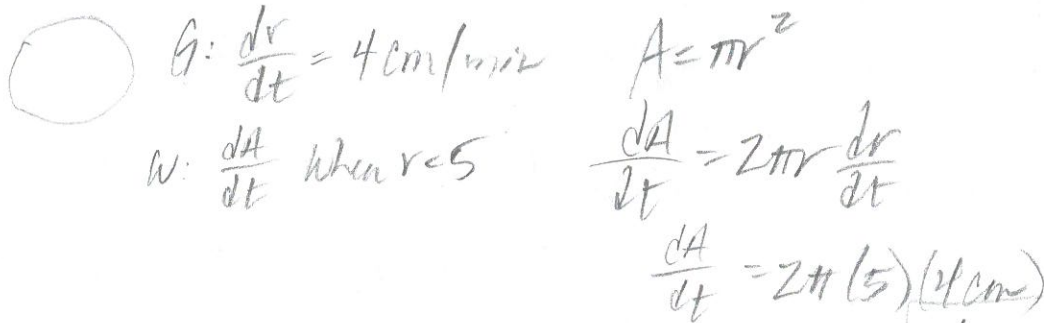 G: dr/dt = 4 cm/min
W: dA/dt when r=5
A = πr²
dA/dt = 2πr dr/dt
dA/dt = 2π(5)(4cm)